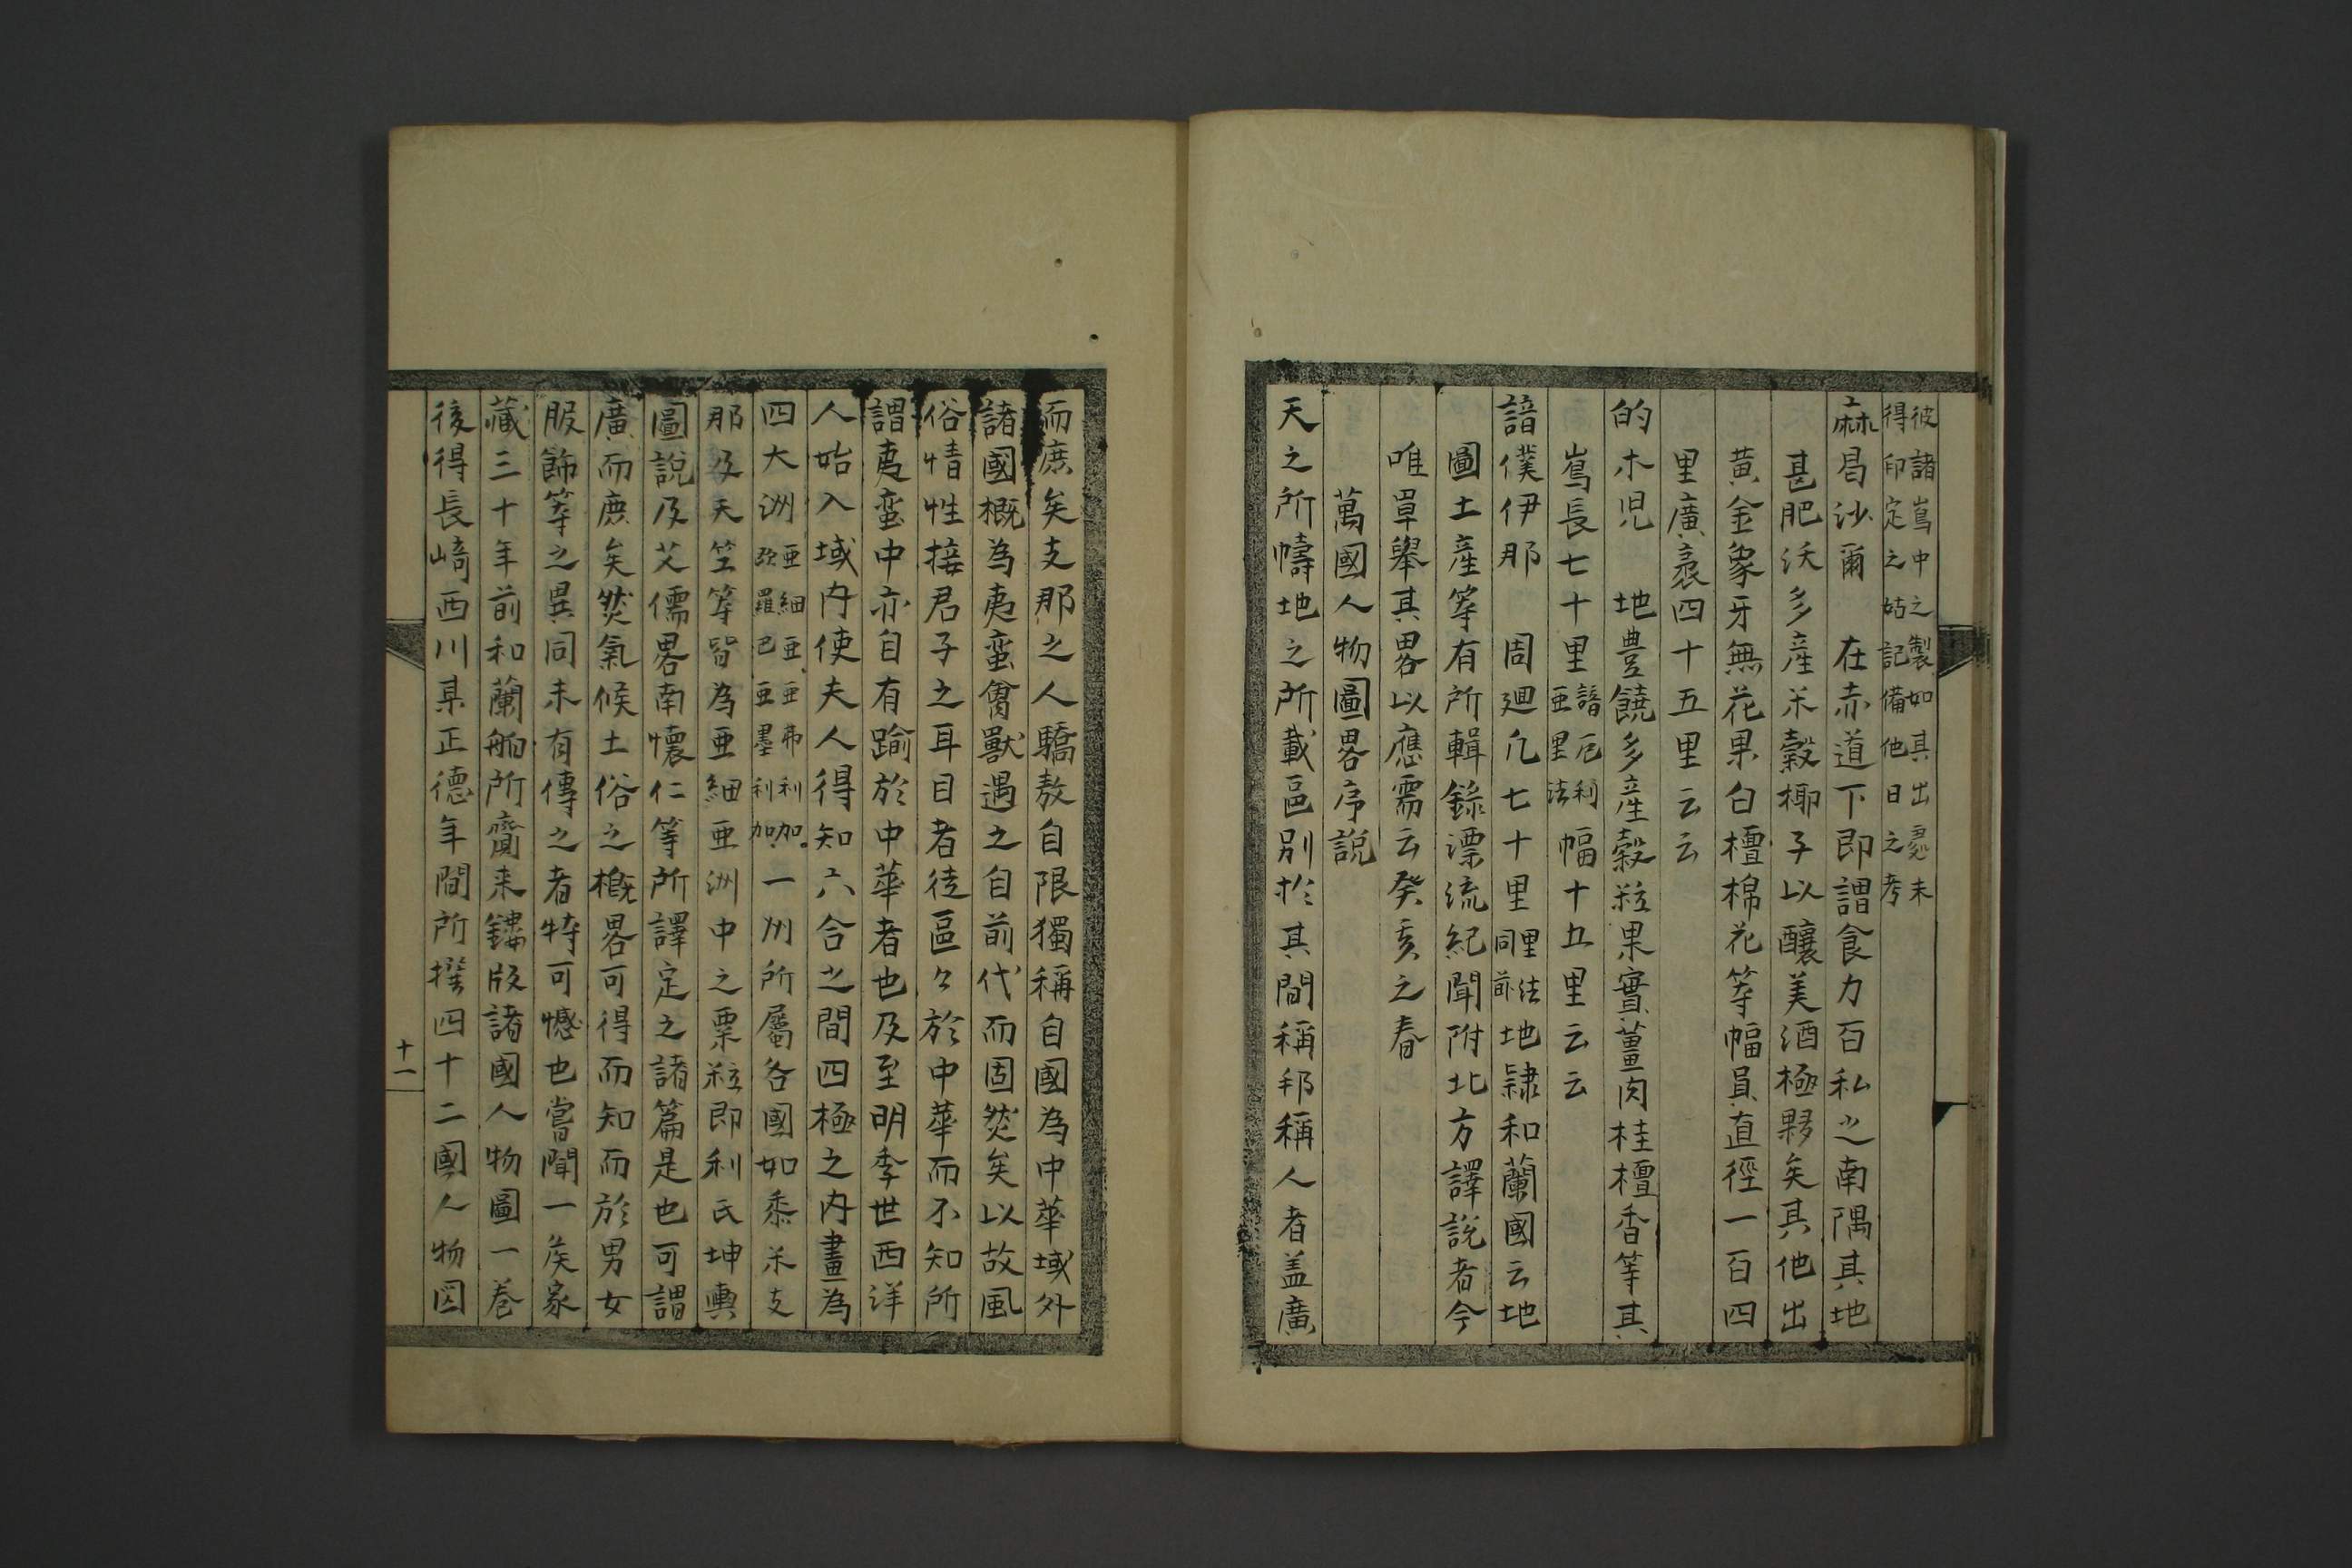 彼諸嶌中之製如其出處未
得印定之姑記備他日之考
麻曷沙爾　在赤道下即謂食力百私之南隅其地
甚肥沃多産米穀椰子以釀美酒極夥矣其他出
黄金象牙無花果白檀棉花等幅員直徑一百四
里廣袤四十五里云云
的木児　地豊饒多産穀粒果實薑肉桂檀香等其
嶌長七十里諳厄利亜里法幅十五里云云
諳僕伊那　周廻凢七十里里法同前地隷和蘭國云地
圖土産等有所輯錄漂流紀聞附北方譯説者今
唯單舉其畧以應需云癸亥之春
萬國人物圖畧序説
天之所幬地之所載區別於其間稱邦稱人者盖廣
而庶矣支那之人驕敖自限獨稱自國為中華域外
諸國概為夷蛮禽獸遇之自前代而固然矣以故風
俗情性接君子之耳目者徒區々於中華而不知所
謂夷蛮中亦自有踰於中華者也及至明季世西洋
人始入域内使夫人得知六合之間四極之内畫為
四大洲亜細亜亜弗利加。欧羅巴亜墨利加。一州所屬各國如黍米支
那及天竺等皆為亜細亜洲中之粟粒即利氏坤輿
圖説及艾儒畧南懐仁等所譯定之諸篇是也可謂
廣而庶矣然氣候土俗之概畧可得而知而於男女
服飾等之異同未有傳之者特可憾也嘗聞一侯家
藏三十年前和蘭舶所齎来鏤版諸國人物圖一巻
後得長﨑西川某正德年間所撰四十二國人物図
十一